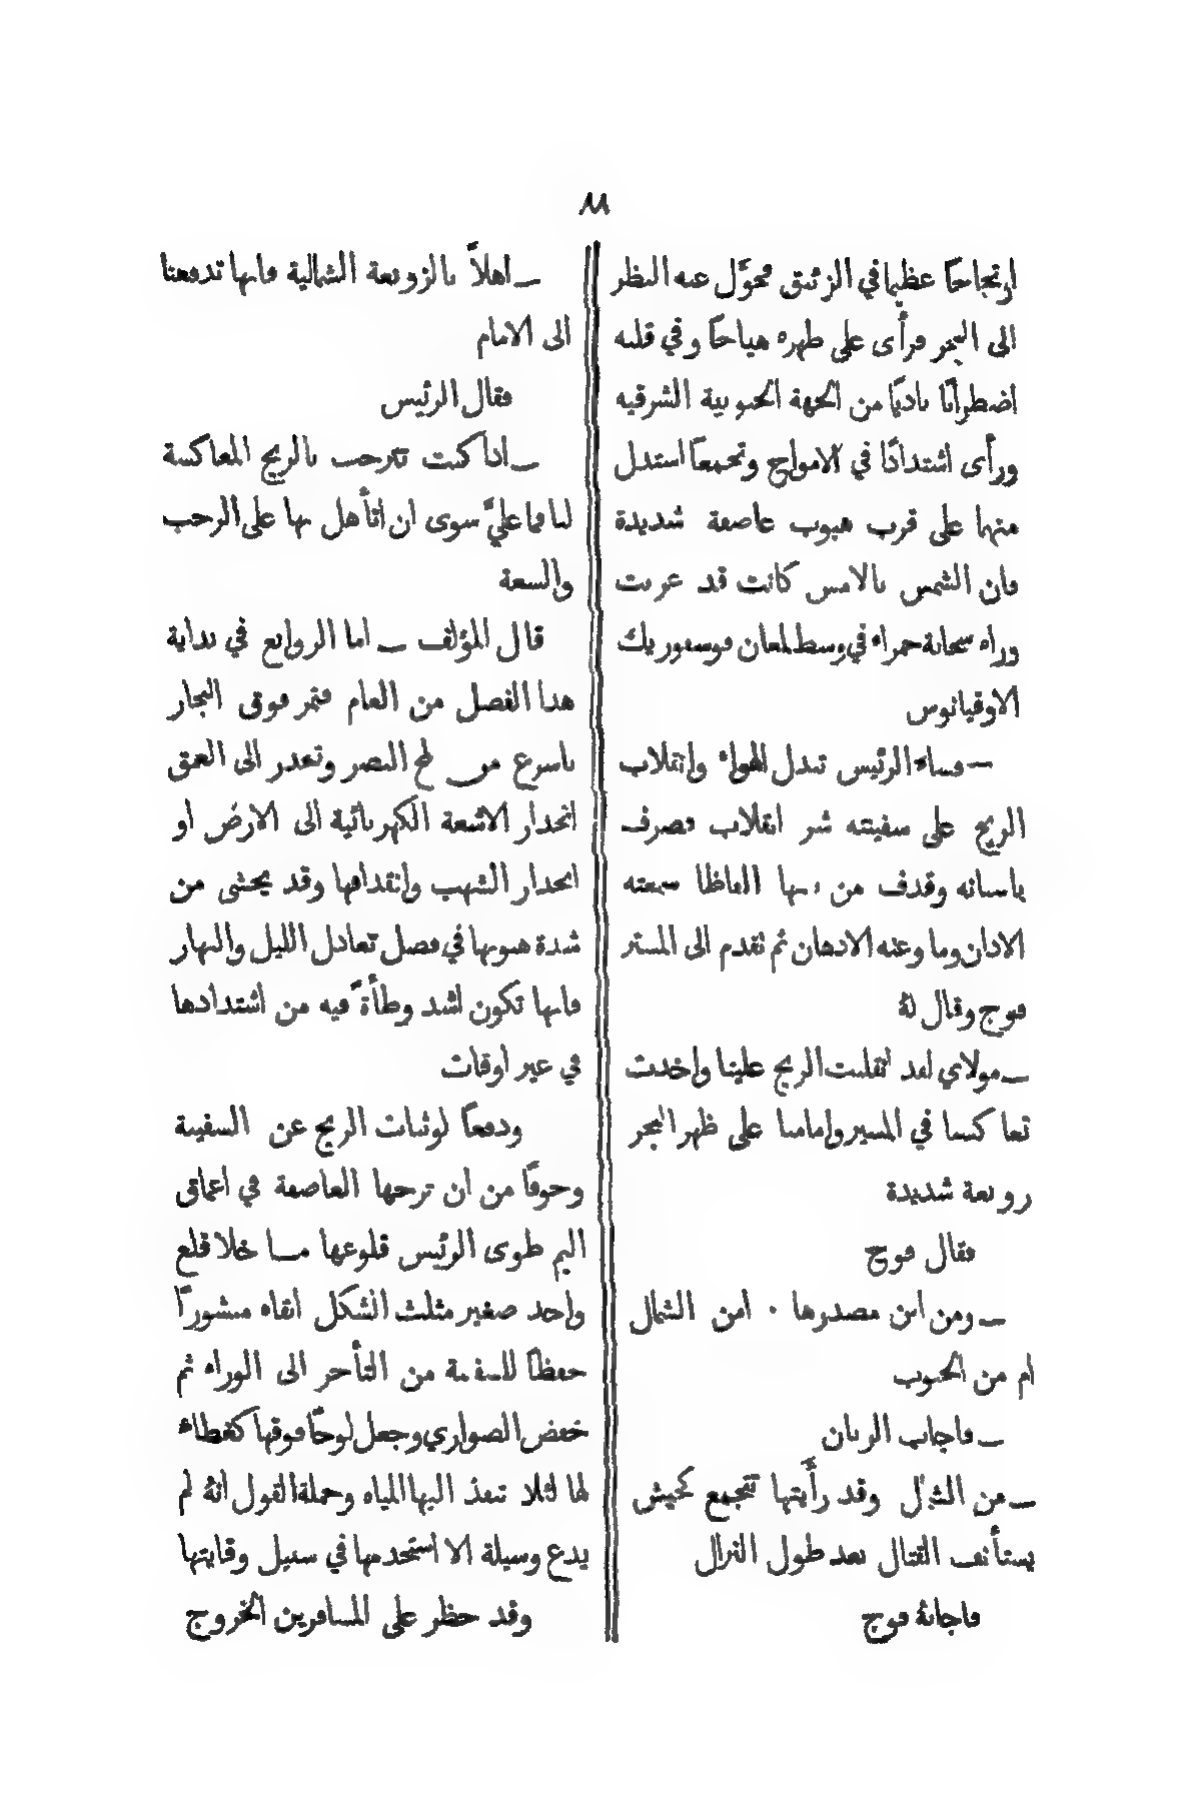 ٨٨
ارتجاجًا عظيما في الزئبق فحوّل عنه النظر
الى البحر فرأى على ظهره هياجًا وفي قلبه
اضطرابًا باديًا من الجهة الجنوبية الشرقيه
ورأى اشتدادًا في الامواج وتجمعًا استدل
منهما على قرب هبوب عاصفة شديدة
فان الشمس بالامس كانت قد غربت
وراء سحابة حمراء في وسط لمعان فوسفوريك
الاوقيانوس
— فساء الرئيس تبدل الهواء وانقلاب
الريح على سفينته شر انقلاب فصرف
باسنانه وقذف من بينها الفاظا سمعته
الاذان وما وعته الاذهان ثم تقدم الى المستر
فوج وقال لهُ
— مولاي لقد انقلبت الريح علينا واخذت
تعاكسنا في المسير وامامنا على ظهر البحر
زوبعة شديدة
فقال فوج
— ومن اين مصدرها . امن الشمال
ام من الجنوب
— فاجاب الربان
— من الشمال وقد رأيتها تتجمع كجيش
يستأنف القتال بعد طول النزال
فاجابهُ فوج
— اهلاً بالزوبعة الشمالية فانها تدفعنا
الى الامام
فقال الرئيس
— اذا كنت تترحب بالريح المعاكسة
لنا فما عليَّ سوى ان اتأهل بها على الرحب
والسعة
قال المؤلف — اما الزوابع في بداية
هذا الفصل من العام فتمر فوق البحار
باسرع من لمح البصر وتحدر الى العمق
انحدار الاشعة الكهربائية الى الارض او
انحدار الشهب وانقذافها وقد يخشى من
شدة هبوبها في فصل تعادل الليل والنهار
فانها تكون اشد وطأةً فيه من اشتدادها
في غير اوقات
ودفعًا لوثبات الريح عن السفينة
وخوفًا من ان ترجها العاصفة في اعماق
اليم طوى الرئيس قلوعها ما خلا قلع
واحد صغير مثلث الشكل ابقاه منشورًا
حفظًا للسفينة من التأخر الى الوراء ثم
خفض الصواري وجعل لوحًا فوقها كغطاء
لها لئلا تنفذ اليها المياه وجملة القول انهُ لم
يدع وسيلة الا استخدمها في سبيل وقايتها
وقد حظر على المسافرين الخروج